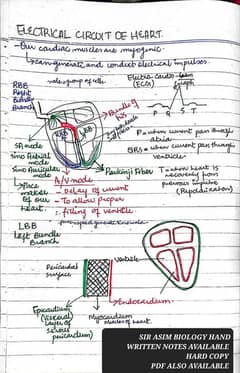 ELECTRICAL CIRCUIT OF HEART.
- Our cardiac muscles are myogenic.
→ can generate and conduct electrical impulses.
node = group of cells
RBB
Right
Bundle
Branch
Electro Cardio
Graph
(ECG)
P Q S T
Bundle of
His
RBB
LBB
P = when current pass through
atria
QRS = when current pass through
ventricle
T = when heart is
recovering from
previous impulse
(Repolarization)
SA node
Sino Atrial
node
Sino Auricular
node
↳ pace
maker
of our
heart.
Purkinji Fibre
A/V node
- Delay of current
- To allow proper
filling of ventricle
LBB
Left Bundle
Branch
Pericardial
surface
Ventricle
Endocardium
Epicardium
(Visceral
layer of
serous
pericardium)
Myocardium
muscles of heart.
SIR ASIM BIOLOGY HAND
WRITTEN NOTES AVAILABLE
HARD COPY
PDF ALSO AVAILABLE